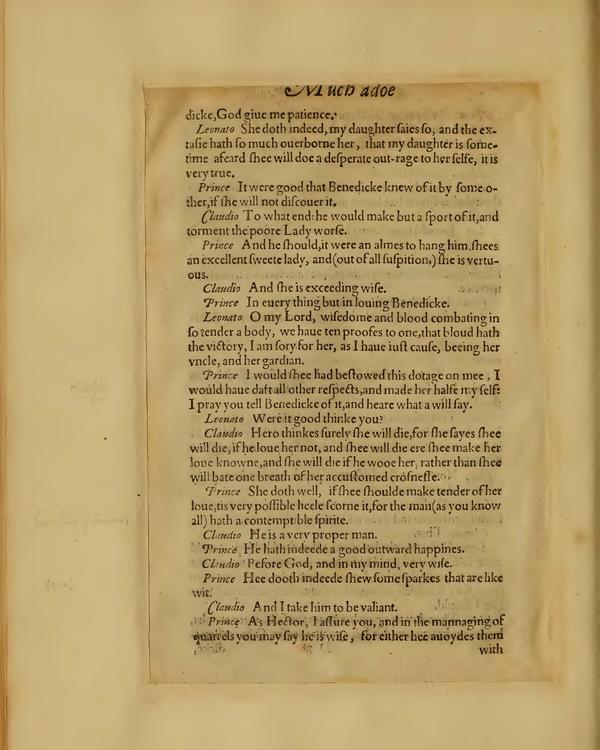 Much adoe
dicke,God giue me patience.
Leonato She doth indeed, my daughter ſaies ſo, and the ex-
taſie hath ſo much ouerborne her, that my daughter is ſome-
time afeard ſhee will doe a deſperate out-rage to her ſelfe, it is
very true.
Prince It were good that Benedicke knew of it by ſome o-
ther,if ſhe will not diſcouer it.
Claudio To what end: he would make but a ſport of it,and
torment the poore Lady worſe.
Prince And he ſhould,it were an almes to hang him,ſhees
an excellent ſweete lady, and(out of all ſuſpition,) ſhe is vertu-
ous.
Claudio And ſhe is exceeding wiſe.
Prince In euery thing but in louing Benedicke.
Leonato O my Lord, wiſedome and blood combating in
ſo tender a body, we haue ten proofes to one,that bloud hath
the victory, I am ſory for her, as I haue iuſt cauſe, beeing her
vncle, and her gardian.
Prince I would ſhee had beſtowed this dotage on mee, I
would haue daft all other reſpects,and made her halfe my ſelf:
I pray you tell Benedicke of it,and heare what a will ſay.
Leonato Were it good thinke you?
Claudio Hero thinkes ſurely ſhe will die,for ſhe ſayes ſhee
will die, if he loue her not, and ſhee will die ere ſhee make her
loue knowne,and ſhe will die if he wooe her, rather than ſhee
will bate one breath of her accuſtomed croſneſſe.
Prince She doth well, if ſhee ſhoulde make tender of her
loue,tis very poſſible heele ſcorne it,for the man(as you know
all) hath a contemptible ſpirite.
Claudio He is a very proper man.
Prince He hath indeede a good outward happines.
Claudio Before God, and in my mind, very wiſe.
Prince Hee dooth indeede ſhew ſome ſparkes that are like
wit.
Claudio And I take him to be valiant.
Prince As Hector, I aſſure you, and in the mannaging of
quarrels you may ſay he is wiſe, for either hee auoydes them
with